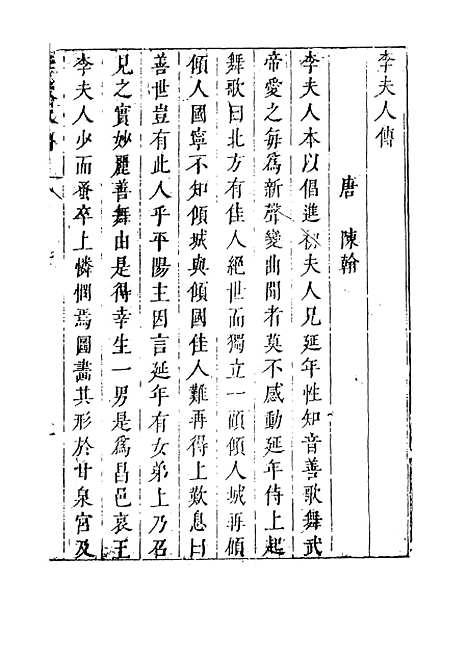 李夫人傳
唐 陳翰
李夫人本以倡進初夫人兄延年性知音善歌舞武
帝愛之每為新聲變曲聞者莫不感動延年侍上起
舞歌曰北方有佳人絕世而獨立一顧傾人城再傾
傾人國寧不知傾城與傾國佳人難再得上歎息曰
善世豈有此人乎平陽主因言延年有女弟上乃召
見之實妙麗善舞由是得幸生一男是為昌邑哀王
李夫人少而蚤卒上憐憫焉圖畫其形於甘泉宮及